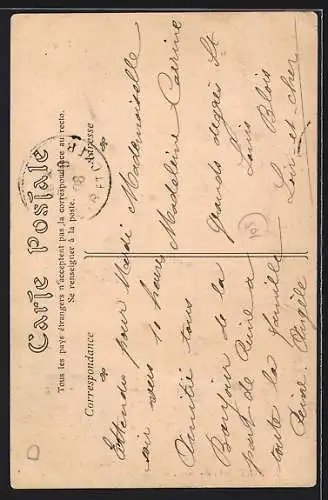 Carte Postale
Tous les pays étrangers n'acceptent pas la correspondance au recto.
Se renseigner à la poste.
Correspondance
Adresse
Attendus pour Mardi
soir vers 10 heures
Amitié tous
Bonjour de la
part de Reine à
toute la famille
Reine. Angèle
Mademoiselle
Madeleine
grands degrés St
Louis
Blois
Loir-et-cher
D